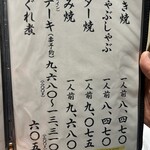 き焼 一人前 八、四七〇
ゃぶしゃぶ 一人前 八、四七〇
ター焼 一人前 九、〇七五
み焼 一人前 九、六八〇
テーキ(要予約) 九、六八〇〜一三、三一〇
ぐれ煮 六〇五